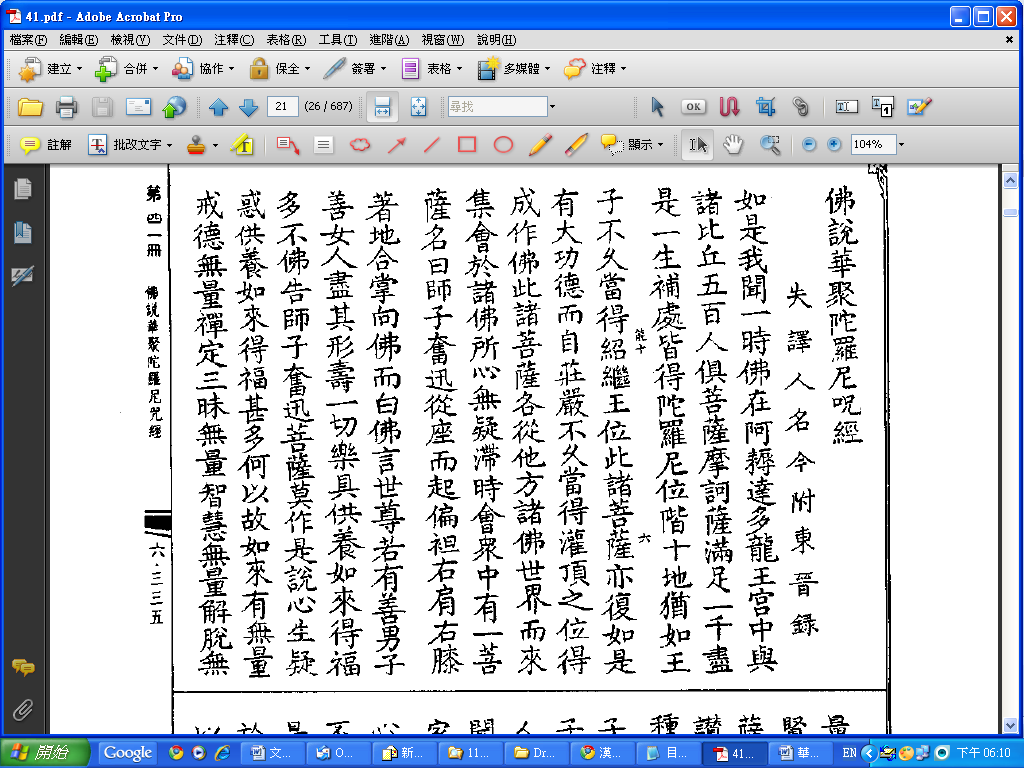 41.pdf - Adobe Acrobat Pro
檔案(F) 編輯(E) 檢視(V) 文件(D) 注釋(C) 表格(R) 工具(T) 進階(A) 視窗(W) 說明(H)
建立 合併 協作 保全 簽署 表格 多媒體 注釋
21 (26 / 687) 尋找 OK
註解 批改文字 顯示 104%
佛說華聚陀羅尼呪經
失譯人名今附東晉錄
如是我聞一時佛在阿耨達多龍王宮中與
諸比丘五百人俱菩薩摩訶薩滿足一千盡
是一生補處皆得陀羅尼位階十地猶如王
能十
六
子不久當得紹繼王位此諸菩薩亦復如是
有大功德而自莊嚴不久當得灌頂之位得
成作佛此諸菩薩各從他方諸佛世界而來
集會於諸佛所心無疑滯時會眾中有一菩
薩名曰師子奮迅從座而起偏袒右肩右膝
著地合掌向佛而白佛言世尊若有善男子
善女人盡其形壽一切樂具供養如來得福
多不佛告師子奮迅菩薩莫作是說心生疑
惑供養如來得福甚多何以故如來有無量
戒德無量禪定三昧無量智慧無量解脫無
第四一冊
佛說華聚陀羅尼呪經
六·三三五
開始 Google 文... O... 新... 11... Dr... 漢... 目... 41... 華... EN 下午 06:10